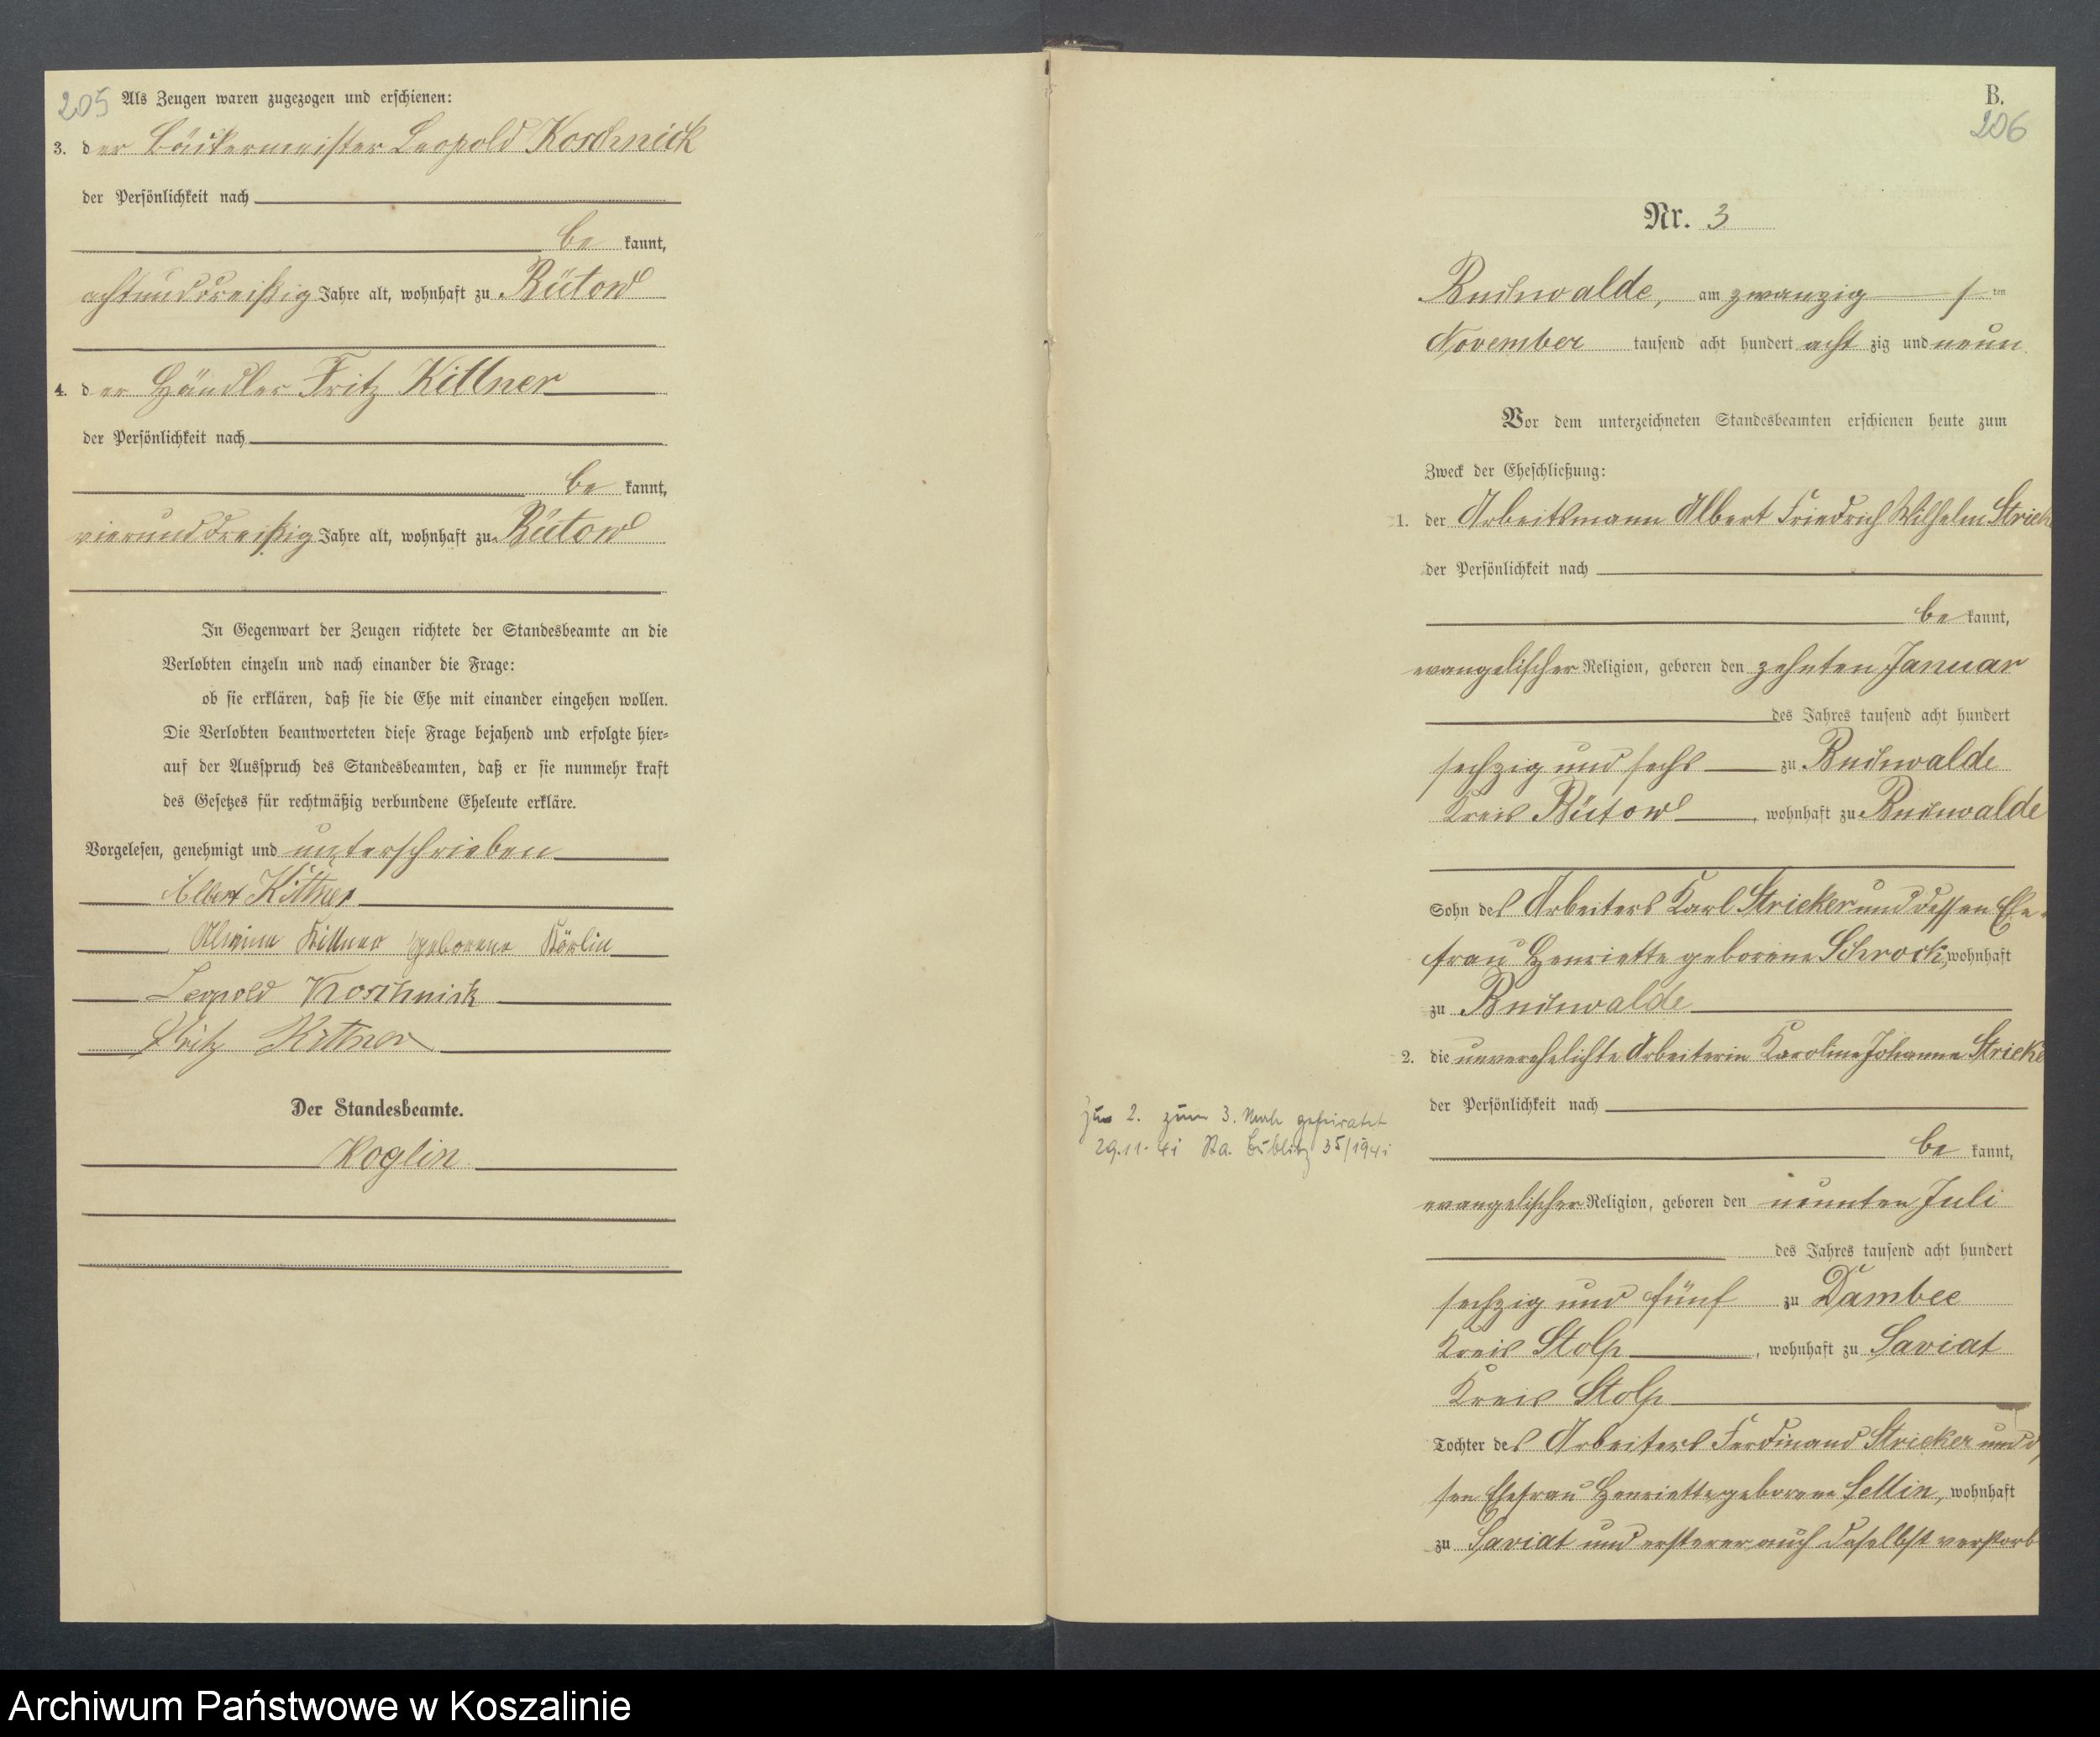 205
Als Zeugen waren zugezogen und erschienen:
3. der Bäckermeister Leopold Koschnick
der Persönlichkeit nach
be kannt,
achtunddreißig Jahre alt, wohnhaft zu Bütow
4. der Händler Fritz Kittner
der Persönlichkeit nach
be kannt,
vierunddreißig Jahre alt, wohnhaft zu Bütow
In Gegenwart der Zeugen richtete der Standesbeamte an die
Verlobten einzeln und nach einander die Frage:
ob sie erklären, daß sie die Ehe mit einander eingehen wollen.
Die Verlobten beantworteten diese Frage bejahend und erfolgte hier=
auf der Ausspruch des Standesbeamten, daß er sie nunmehr kraft
des Gesetzes für rechtmäßig verbundene Eheleute erkläre.
Vorgelesen, genehmigt und unterschrieben
Albert Kittner
Alwine Kittner geborene Körlin
Leopold Koschnick
Fritz Kittner
Der Standesbeamte.
Koglin
B.
206
Nr. 3
Buchwalde, am zwanzig s ten
November tausend acht hundert acht zig und neun
Vor dem unterzeichneten Standesbeamten erschienen heute zum
Zweck der Eheschließung:
1. der Arbeitsmann Albert Friedrich Wilhelm Strick
der Persönlichkeit nach
be kannt,
evangelischer Religion, geboren den zehnten Januar
des Jahres tausend acht hundert
sechzig und sechs zu Buchwalde
Kreis Bütow, wohnhaft zu Buchwalde
Sohn des Arbeiters Karl Stricker und dessen Ehe-
frau Henriette geborene Schrock, wohnhaft
zu Buchwalde
2. die unverehelichte Arbeiterin Karoline Johanne Stricke
der Persönlichkeit nach
be kannt,
zu 2. zum 3. Male geheiratet
29.11.41 Sta. Bublitz 35/1941
evangelischer Religion, geboren den neunten Juli
des Jahres tausend acht hundert
sechzig und fünf zu Dambee
Kreis Stolp, wohnhaft zu Saviat
Kreis Stolp
Tochter des Arbeiters Ferdinand Stricker und d
sen Ehefrau Henriette geborene Sellin, wohnhaft
zu Saviat und ersterer auch daselbst verstorb
Archiwum Państwowe w Koszalinie